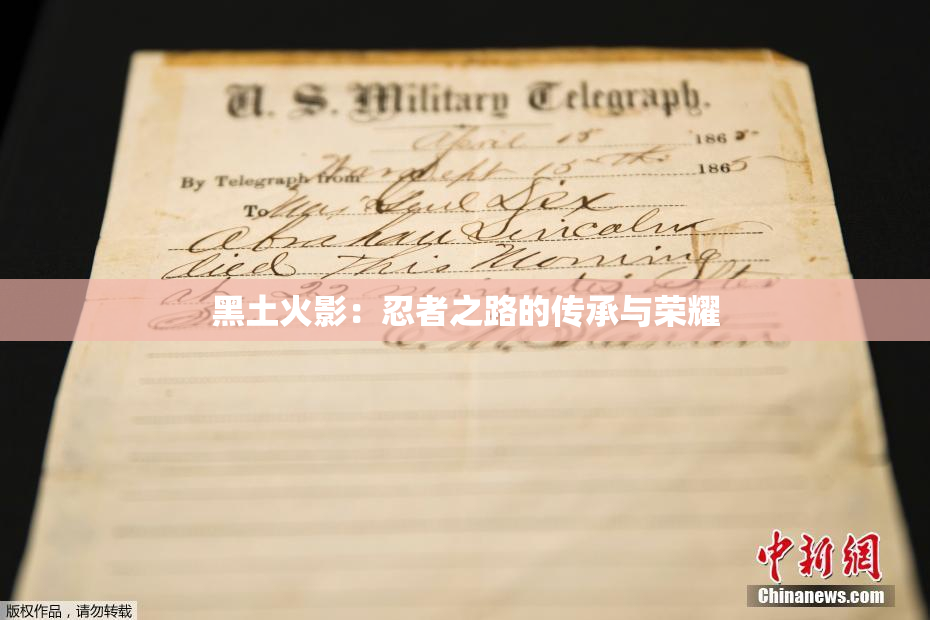 U. S. Military Telegraph.
April 15 1865
By Telegraph from War Dept 15th 1865
To Maj Genl Dix
Abraham Lincoln
died This Morning
at 22 minutes after
黑土火影：忍者之路的传承与荣耀
E. M. Stanton
中新网
Chinanews.com
版权作品，请勿转载